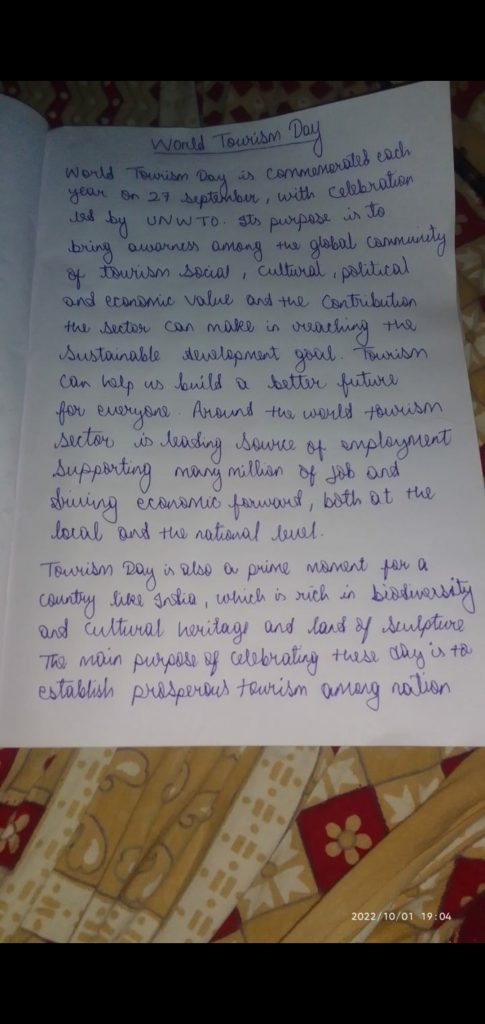 World Tourism Day
World Tourism Day is commemorated each
year on 27 september, with celebration
led by UNWTO. Its purpose is to
bring awarness among the global community
of tourism social, cultural, political
and economic value and the contribution
the sector can make in reaching the
sustainable development goal. Tourism
can help us build a better future
for everyone. Around the world tourism
sector is leading source of employment
supporting many million of job and
driving economic forward, both at the
local and the national level.
Tourism Day is also a prime moment for a
country like India, which is rich in biodiversity
and cultural heritage and land of sculpture
The main purpose of celebrating these day is to
establish prosperous tourism among nation
2022/10/01 19:04